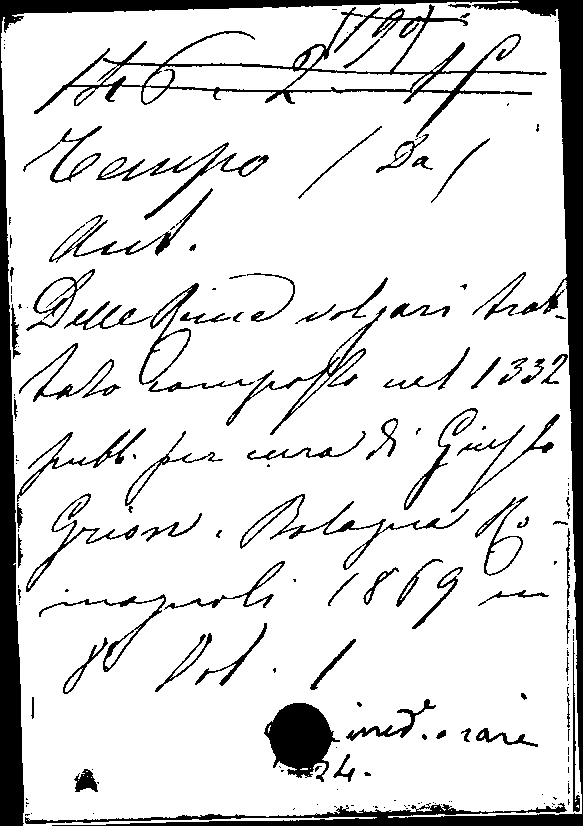 146. 2. 15
Tempo (Da)
Ant.
Delle Rime volgari trat-
tato composto nel 1332
pubb. per cura di Giusto
Grion. Bologna Ro-
magnoli 1869 in
8° Vol. 1
ined.e o rare
24.